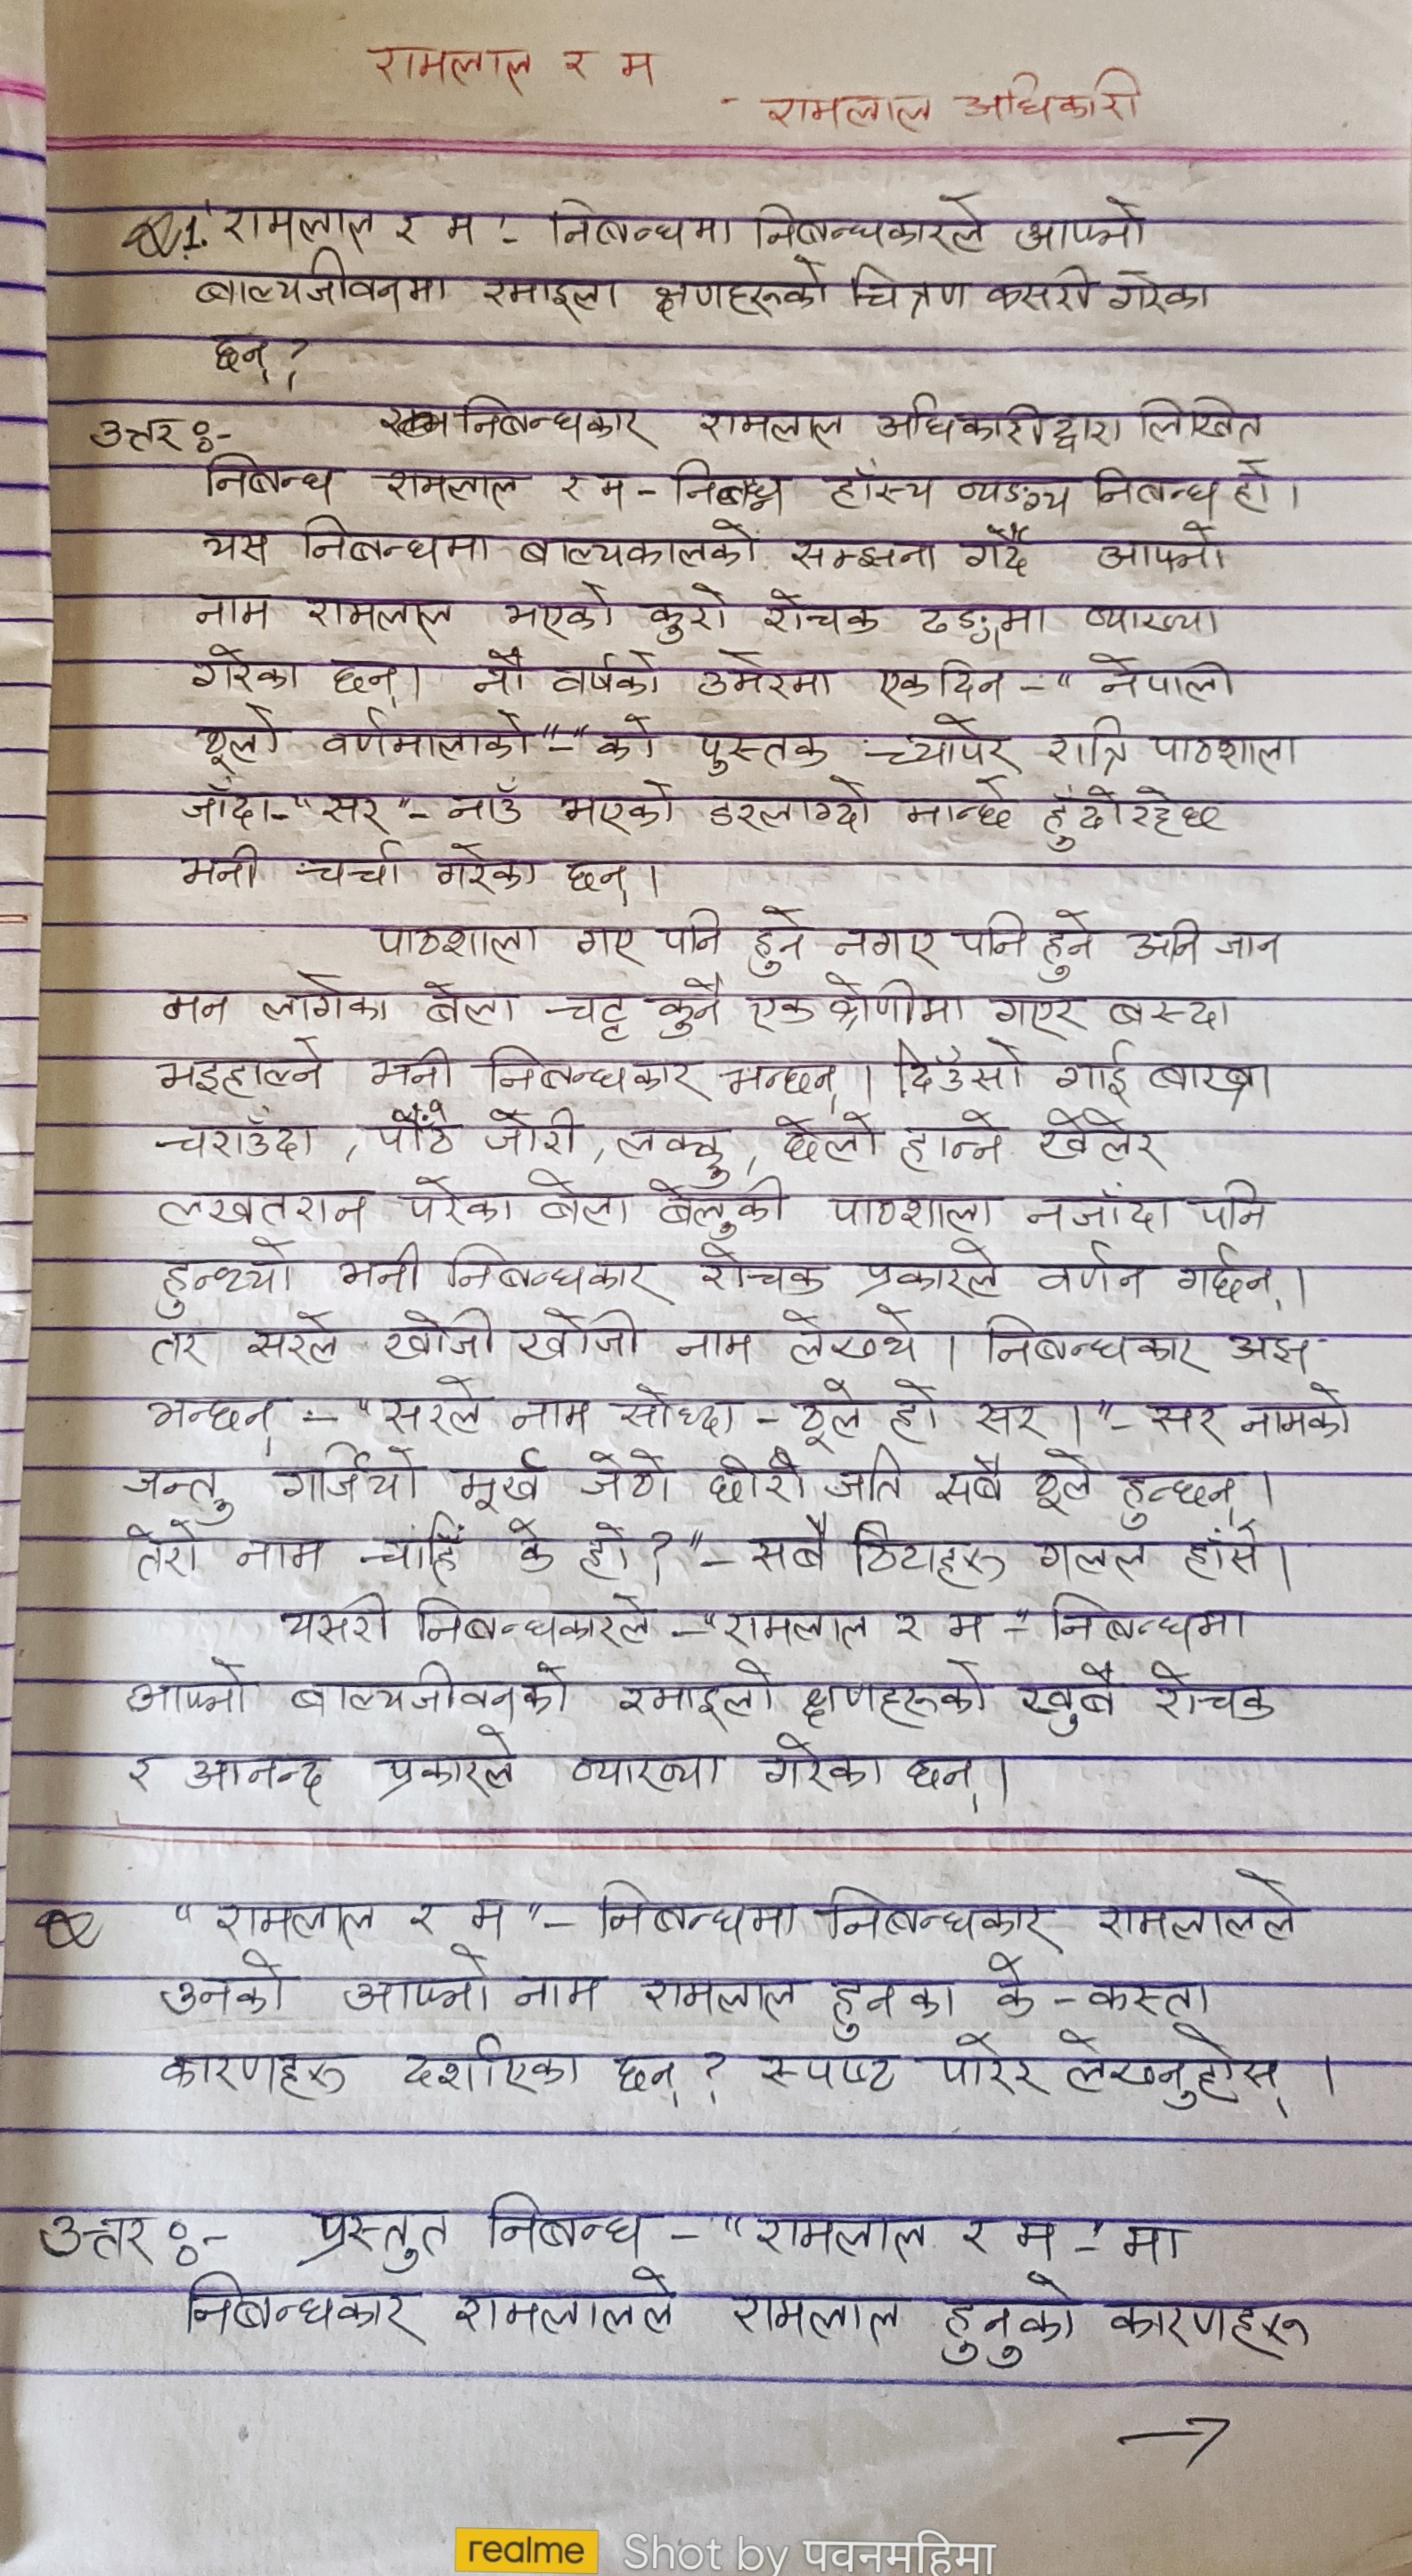 रामलाल र म
- रामलाल अधिकारी
Q.1. रामलाल र म'- निबन्धमा निबन्धकारले आफ्नो
बाल्यजीवनमा रमाइला क्षणहरूको चित्रण कसरी गरेका
छन्?
उत्तर :- निबन्धकार रामलाल अधिकारीद्वारा लिखित
निबन्ध रामलाल र म - निबन्ध हाँस्य व्यङग्य निबन्ध हो।
यस निबन्धमा बाल्यकालको सम्झना गर्दै आफ्नो
नाम रामलाल भएको कुरो रोचक ढङ्गमा व्याख्या
गरेका छन्। नौ वर्षको उमेरमा एकदिन -" नेपाली
ठूलो वर्णमालाको"-"को पुस्तक च्यापेर रात्रि पाठशाला
जाँदा-"सर"- नाउँ भएको डरलाग्दो मान्छे हुँदोरहेछ
भनी चर्चा गरेका छन्।
पाठशाला गए पनि हुने नगए पनि हुने अनि जान
मन लागेका बेला चट्ट कुनै एक श्रेणीमा गएर बस्दा
भइहाल्ने भनी निबन्धकार भन्छन्। दिउँसो गाई बाख्रा
चराउँदा, पौंठे जोरी, लक्चु, छेलो हान्ने खेलेर
लखतरान परेका बेला बेलुकी पाठशाला नजाँदा पनि
हुन्थ्यो भनी निबन्धकार रोचक प्रकारले वर्णन गर्छन्।
तर सरले खोजी खोजी नाम लेख्थे। निबन्धकार अझ
भन्छन् :- "सरले नाम सोध्दा - ठूले हो सर।"- सर नामको
जन्तु गर्जियो मूर्ख जेठो छोरो जति सबै ठूले हुन्छन्।
तेरो नाम चाहिँ के हो?"- सबै ठिटाहरू गलल हाँसे।
यसरी निबन्धकारले -"रामलाल र म -" निबन्धमा
आफ्नो बाल्यजीवनको रमाइलो क्षणहरूको खुबै रोचक
र आनन्द प्रकारले व्याख्या गरेका छन्।
Q "रामलाल र म"- निबन्धमा निबन्धकार रामलालले
उनको आफ्नो नाम रामलाल हुनका के - कस्ता
कारणहरू दर्शाएका छन्? स्पष्ट पारेर लेख्नुहोस्।
उत्तर :- प्रस्तुत निबन्ध - "रामलाल र म -' मा
निबन्धकार रामलालले रामलाल हुनुको कारणहरू
→
realme Shot by पवनमहिमा